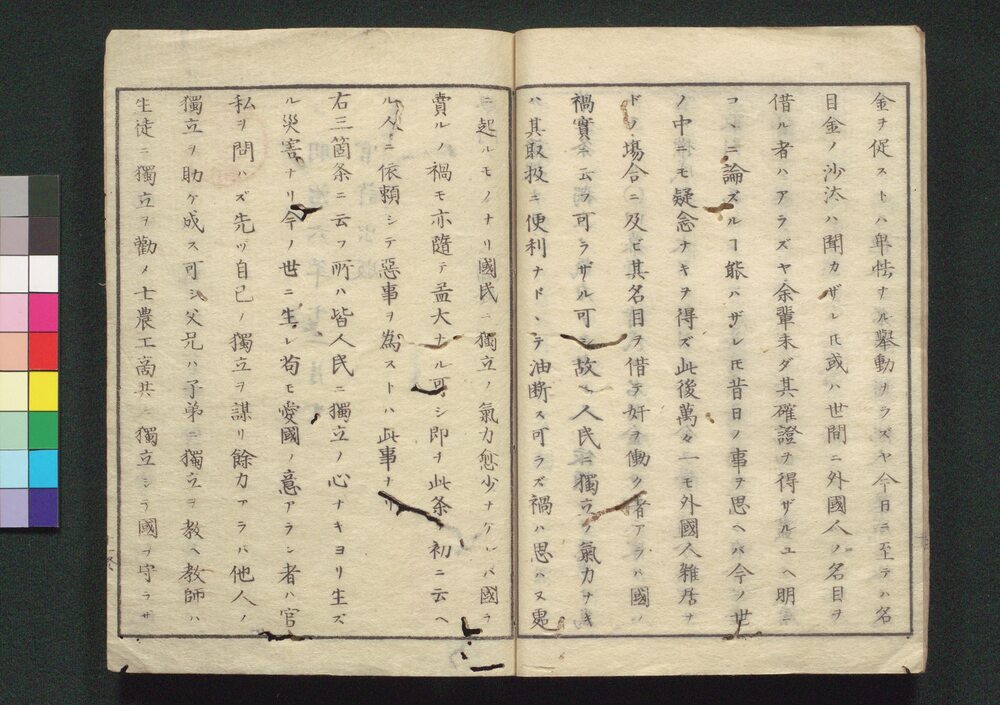 金ヲ促ストハ卑怯ナル舉動ナラズヤ今日ニ至テハ名
目金ノ沙汰ハ聞カザレ𪜈或ハ世間ニ外國人ノ名目ヲ
借ル者ハアラズヤ余輩未ダ其確證ヲ得ザルユヘ明ニ
コヽニ論ズルヿ能ハザレ𪜈昔日ノ事ヲ思ヘバ今ノ世
ノ中ニモ疑念ナキヲ得ズ此後萬々一モ外國人雜居ナ
ドノ場合ニ及ビ其名目ヲ借テ奸ヲ働ク者アラバ國ノ
禍實ニ云フ可ラザル可シ故ニ人民ニ獨立ノ氣力ナキ
ハ其取扱ニ便利ナドヽテ油斷ス可ラズ禍ハ思ハヌ處
ニ起ルモノナリ國民ニ獨立ノ氣力愈少ナケレバ國ヲ
賣ルノ禍モ亦隨テ益大ナル可シ即チ此条ノ初ニ云ヘ
ル人ニ依頼シテ惡事ヲ為ストハ此事ナリ
右三箇条ニ云フ所ハ皆人民ニ獨立ノ心ナキヨリ生ズ
ル災害ナリ今ノ世ニ生レ苟モ愛國ノ意アラン者ハ官
私ヲ問ハズ先ヅ自己ノ獨立ヲ謀リ餘力アラバ他人ノ
獨立ヲ助ケ成ス可シ父兄ハ子弟ニ獨立ヲ教ヘ教師ハ
生徒ニ獨立ヲ勸メ士農工商共ニ獨立シテ國ヲ守ラザ